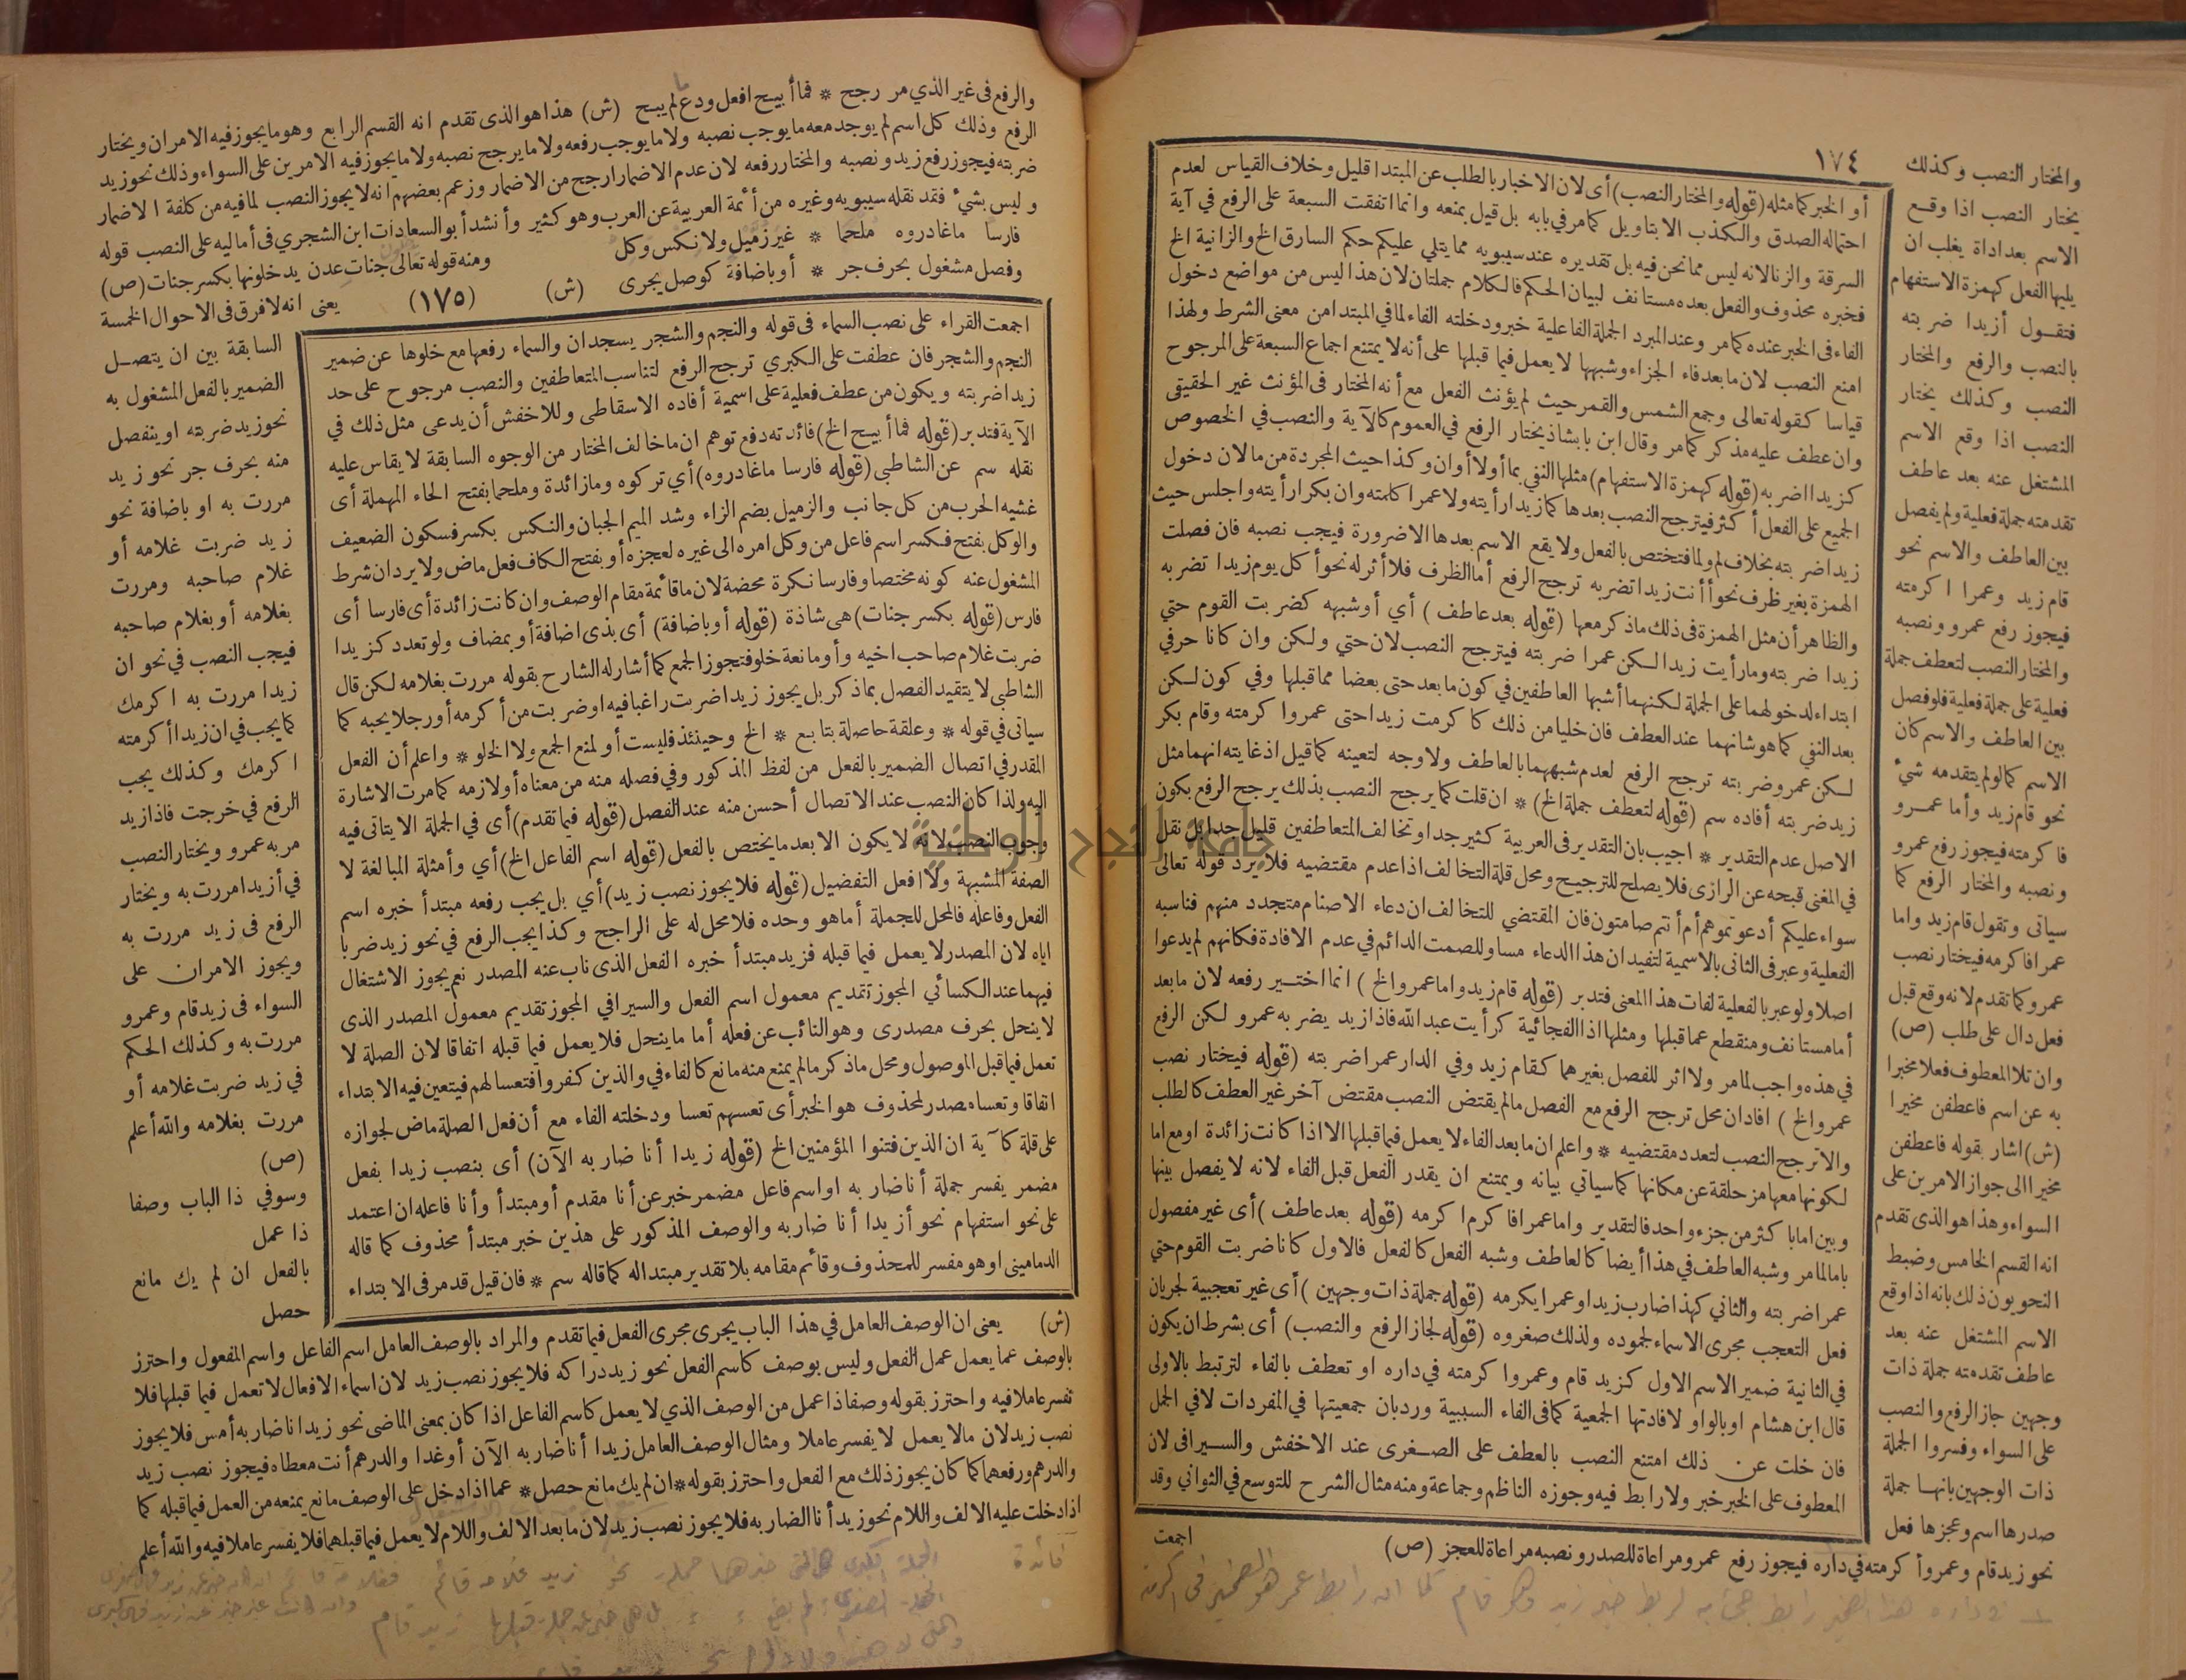 ١٧٤
والمختار النصب وكذلك
يختار النصب اذا وقع
الاسم بعد اداة يغلب ان
يليها الفعل كهمزة الاستفهام
فتقول أزيدا ضربته
بالنصب والرفع والمختار
النصب وكذلك يختار
النصب اذا وقع الاسم
المشتغل عنه بعد عاطف
تقدمته جملة فعلية ولم يفصل
بين العاطف والاسم نحو
قام زيد وعمرا اكرمته
فيجوز رفع عمرو ونصبه
والمختار النصب لتعطف جملة
فعلية على جملة فعلية فلو فصل
بين العاطف والاسم كان
الاسم كما لو لم يتقدمه شئ
نحو قام زيد وأما عمرو
فاكرمته فيجوز رفع عمرو
ونصبه والمختار الرفع كما
سيأتى وتقول قام زيد واما
عمرا فاكرمه فيختار نصب
عمرو كما تقدم لانه وقع قبل
فعل دال على طلب (ص)
وان تلا المعطوف فعلا مخبرا
به عن اسم فاعطفن مخيرا
(ش) اشار بقوله فاعطفن
مخيرا الى جواز الامرين على
السواء وهذا هو الذى تقدم
انه القسم الخامس وضبط
النحويون ذلك بانه اذا وقع
الاسم المشتغل عنه بعد
عاطف تقدمته جملة ذات
وجهين جاز الرفع والنصب
على السواء وفسروا الجملة
ذات الوجهين بانها جملة
صدرها اسم وعجزها فعل
نحو زيد قام وعمروأ كرمته في داره فيجوز رفع عمرو مراعاة للصدر ونصبه مراعاة للعجز (ص)
أو الخبر كما مثله (قوله والمختار النصب) أى لان الاخبار بالطلب عن المبتدا قليل وخلاف القياس لعدم
احتماله الصدق والكذب الا بتاويل كما مر في بابه بل قيل بمنعه وانما اتفقت السبعة على الرفع في آية
السرقة والزنا لانه ليس مما نحن فيه بل تقديره عند سيبويه مما يتلي عليكم حكم السارق الخ والزانية الخ
فخبره محذوف والفعل بعده مستانف لبيان الحكم فالكلام جملتان لان هذا ليس من مواضع دخول
الفاء فى الخبر عنده كما مر وعند المبرد الجملة الفاعلية خبر ودخلته الفاء لما في المبتدا من معنى الشرط ولهذا
امنع النصب لان ما بعد فاء الجزاء وشبهها لا يعمل فيما قبلها على أنه لا يمتنع اجماع السبعة على المرجوح
قياسا كقوله تعالى وجمع الشمس والقمر حيث لم يؤنث الفعل مع أنه المختار فى المؤنث غير الحقيقى
وان عطف عليه مذكر كما مر وقال ابن بابشاذ يختار الرفع في العموم كالآية والنصب في الخصوص
كزيدا اضربه (قوله كهمزة الاستفهام) مثلها النفي بما أو لا أو ان وكذا حيث المجردة من ما لان دخول
الجميع على الفعل أكثر فيترجح النصب بعدها كما زيدا رأيته ولا عمرا كلمته وان بكرا رأيته واجلس حيث
زيدا ضربته بخلاف لم ولما فتختص بالفعل ولا يقع الاسم بعدها الا ضرورة فيجب نصبه فان فصلت
الهمزة بغير ظرف نحو أأنت زيدا تضربه ترجح الرفع أما الظرف فلا أثر له نحو أكل يوم زيدا تضربه
والظاهر أن مثل الهمزة فى ذلك ماذكر معها (قوله بعد عاطف) أي أو شبهه كضربت القوم حتي
زيدا ضربته وما رأيت زيدا لكن عمرا ضربته فيترجح النصب لان حتي ولكن وان كانا حرفي
ابتداء لدخولهما على الجملة لكنهما أشبها العاطفين في كون ما بعد حتى بعضا مما قبلها وفي كون لكن
بعد النفي كما هو شانهما عند العطف فان خليا من ذلك كاكرمت زيدا حتى عمروا كرمته وقام بكر
لكن عمرو ضربته ترجح الرفع لعدم شبههما بالعاطف ولا وجه لتعينه كما قيل اذ غايته انهما مثل
زيد ضربته أفاده سم (قوله لتعطف جملة الخ) * ان قلت كما يرجح النصب بذلك يرجح الرفع بكون
الاصل عدم التقدير * اجيب بان التقدير فى العربية كثير جدا وتخالف المتعاطفين قليل جدا بل نقل
في المغنى قبحه عن الرازى فلا يصلح للترجيح ومحل قلة التخالف اذا عدم مقتضيه فلا يرد قوله تعالى
سواء عليكم أدعوتموهم أم أنتم صامتون فان المقتضي للتخالف ان دعاء الاصنام متجدد منهم فناسبه
الفعلية وعبر فى الثانى بالاسمية لتفيد ان هذا الدعاء مساو للصمت الدائم في عدم الافادة فكانهم لم يدعوا
اصلا ولو عبر بالفعلية لفات هذا المعنى فتدبر (قوله قام زيد واما عمرو الخ) انما اختير رفعه لان ما بعد
أما مستانف ومنقطع عما قبلها ومثلها اذا الفجائية كرأيت عبد الله فاذا زيد يضربه عمرو لكن الرفع
في هذه واجب لما مر ولا اثر للفصل بغيرهما كقام زيد وفي الدار عمرا ضربته (قوله فيختار نصب
عمرو الخ) افاد ان محل ترجح الرفع مع الفصل ما لم يقتض النصب مقتض آخر غير العطف كالطلب
والا ترجح النصب لتعدد مقتضيه * واعلم ان ما بعد الفاء لا يعمل فيما قبلها الا اذا كانت زائدة او مع اما
لكونها معها مزحلقة عن مكانها كما سيأتي بيانه ويمتنع ان يقدر الفعل قبل الفاء لانه لا يفصل بينها
وبين اما باكثر من جزء واحد فالتقدير واما عمرا فاكرم اكرمه (قوله بعد عاطف) أى غير مفصول
باما لما مر وشبه العاطف في هذا أيضا كالعاطف وشبه الفعل كالفعل فالاول كانا ضربت القوم حتي
عمرا ضربته والثاني كهذا ضارب زيدا وعمرا يكرمه (قوله جملة ذات وجهين) أى غير تعجبية لجريان
فعل التعجب مجرى الاسماء لجموده ولذلك صغروه (قوله لجاز الرفع والنصب) أى بشرط ان يكون
في الثانية ضمير الاسم الاول كزيد قام وعمروا كرمته في داره او تعطف بالفاء لترتبط بالاولى
قال ابن هشام او بالواو لافادتها الجمعية كما فى الفاء السببية وردبان جمعيتها في المفردات لا في الجمل
فان خلت عن ذلك امتنع النصب بالعطف على الصغرى عند الاخفش والسيرافى لان
المعطوف على الخبر خبر ولا رابط فيه وجوزه الناظم وجماعة ومنه مثال الشرح للتوسع في الثواني وقد
اجمعت
والرفع فى غير الذي مر رجح * فما أبيح افعل ودع ما لم يبح (ش) هذا هو الذى تقدم انه القسم الرابع وهو ما يجوز فيه الامران ويختار
الرفع وذلك كل اسم لم يوجد معه ما يوجب نصبه ولا ما يوجب رفعه ولا ما يرجح نصبه ولا ما يجوز فيه الامرين على السواء وذلك نحو زيد
ضربته فيجوز رفع زيد ونصبه والمختار رفعه لان عدم الاضمار ارجح من الاضمار وزعم بعضهم انه لا يجوز النصب لما فيه من كلفة الاضمار
وليس بشئ فقد نقله سيبويه وغيره من أئمة العربية عن العرب وهو كثير وأنشد أبو السعادات ابن الشجري فى أماليه على النصب قوله
فارسا ماغادروه ملحما * غير زميل ولا نكس وكل
ومنه قوله تعالى جنات عدن يدخلونها بكسر جنات (ص)
وفصل مشغول بحرف جر * أو باضافة كوصل يجرى (ش)
(١٧٥)
يعنى انه لا فرق فى الاحوال الخمسة
السابقة بين ان يتصل
الضمير بالفعل المشغول به
نحو زيد ضربته او ينفصل
منه بحرف جر نحو زيد
مررت به او باضافة نحو
زيد ضربت غلامه أو
غلام صاحبه ومررت
بغلامه أو بغلام صاحبه
فيجب النصب في نحو ان
زيدا مررت به اكرمك
كما يجب في ان زيدا أكرمته
اكرمك وكذلك يجب
الرفع في خرجت فاذا زيد
مر به عمرو ويختار النصب
في أزيدا مررت به ويختار
الرفع فى زيد مررت به
ويجوز الامران على
السواء فى زيد قام وعمرو
مررت به وكذلك الحكم
في زيد ضربت غلامه أو
مررت بغلامه والله أعلم
(ص)
وسوفي ذا الباب وصفا
ذا عمل
بالفعل ان لم يك مانع
حصل
اجمعت القراء على نصب السماء فى قوله والنجم والشجر يسجدان والسماء رفعها مع خلوها عن ضمير
النجم والشجر فان عطفت على الكبري ترجح الرفع لتناسب المتعاطفين والنصب مرجوح على حد
زيدا ضربته ويكون من عطف فعلية على اسمية أفاده الاسقاطى وللاخفش أن يدعى مثل ذلك في
الآية فتدبر (قوله فما أبيح الخ) فائدته دفع توهم ان ما خالف المختار من الوجوه السابقة لا يقاس عليه
نقله سم عن الشاطبى (قوله فارسا ماغادروه) أي تركوه وما زائدة وملحما بفتح الحاء المهملة أى
غشيه الحرب من كل جانب والزميل بضم الزاء وشد الميم الجبان والنكس بكسر فسكون الضعيف
والوكل بفتح فكسر اسم فاعل من وكل امره الى غيره لعجزه أو بفتح الكاف فعل ماض ولا يرد ان شرط
المشغول عنه كونه مختصا وفارسا نكرة محضة لان ما قائمة مقام الوصف وان كانت زائدة أى فارسا أى
فارس (قوله بكسر جنات) هى شاذة (قوله أو باضافة) أى بذى اضافة أو بمضاف ولو تعدد كزيدا
ضربت غلام صاحب اخيه وأو مانعة خلو فتجوز الجمع كما أشار له الشارح بقوله مررت بغلامه لكن قال
الشاطبي لا يتقيد الفصل بما ذكر بل يجوز زيدا ضربت راغبا فيه او ضربت من أكرمه أو رجلا يحبه كما
سياتى في قوله * وعلقة حاصلة بتابع * الخ وحينئذ فليست أو لمنع الجمع ولا الخلو * واعلم أن الفعل
المقدر في اتصال الضمير بالفعل من لفظ المذكور وفي فصله منه من معناه أو لازمه كما مرت الاشارة
اليه ولذا كان النصب عند الاتصال أحسن منه عند الفصل (قوله فيما تقدم) أى في الجملة الا يتاتى فيه
وجوب النصب لانه لا يكون الا بعد ما يختص بالفعل (قوله اسم الفاعل الخ) أي وأمثلة المبالغة لا
الصفة المشبهة ولا افعل التفضيل (قوله فلا يجوز نصب زيد) أي بل يجب رفعه مبتدأ خبره اسم
الفعل وفاعله فالمحل للجملة أما هو وحده فلا محل له على الراجح وكذا يجب الرفع في نحو زيد ضربا
اياه لان المصدر لا يعمل فيما قبله فزيد مبتدأ خبره الفعل الذى ناب عنه المصدر نعم يجوز الاشتغال
فيهما عند الكسائي المجوز تقديم معمول اسم الفعل والسيرافي المجوز تقديم معمول المصدر الذى
لا ينحل بحرف مصدرى وهو النائب عن فعله أما ما ينحل فلا يعمل فيما قبله اتفاقا لان الصلة لا
تعمل فيما قبل الموصول ومحل ماذكر ما لم يمنع منه مانع كالفاء في والذين كفروا فتعسا لهم فيتعين فيه الابتداء
اتفاقا وتعسا مصدر لمحذوف هو الخبر أى تعسهم تعسا ودخلته الفاء مع أن فعل الصلة ماض لجوازه
على قلة كآية ان الذين فتنوا المؤمنين الخ (قوله زيدا أنا ضاربه الآن) أى بنصب زيدا بفعل
مضمر يفسر جملة أنا ضاربه او اسم فاعل مضمر خبر عن أنا مقدم أو مبتدأ وأنا فاعله ان اعتمد
على نحو استفهام نحو أزيدا أنا ضاربه والوصف المذكور على هذين خبر مبتدأ محذوف كما قاله
الدمامينى او هو مفسر للمحذوف وقائم مقامه بلا تقدير مبتدا له كما قاله سم * فان قيل قد مر فى الابتداء
(ش) يعنى ان الوصف العامل في هذا الباب يجرى مجرى الفعل فيما تقدم والمراد بالوصف العامل اسم الفاعل واسم المفعول واحترز
بالوصف عما يعمل عمل الفعل وليس بوصف كاسم الفعل نحو زيد دراكه فلا يجوز نصب زيد لان اسماء الافعال لا تعمل فيما قبلها فلا
تفسر عاملا فيه واحترز بقوله وصفا ذا عمل من الوصف الذي لا يعمل كاسم الفاعل اذا كان بمعنى الماضى نحو زيدا نا ضاربه أمس فلا يجوز
نصب زيد لان ما لا يعمل لا يفسر عاملا ومثال الوصف العامل زيدا أنا ضاربه الآن أو غدا والدرهم أنت معطاه فيجوز نصب زيد
والدرهم ورفعهما كما كان يجوز ذلك مع الفعل واحترز بقوله * ان لم يك مانع حصل * عما اذا دخل على الوصف مانع يمنعه من العمل فيما قبله كما
اذا دخلت عليه الالف واللام نحو زيد أنا الضاربه فلا يجوز نصب زيد لان ما بعد الالف واللام لا يعمل فيما قبلهما فلا يفسر عاملا فيه والله أعلم
فائدة
جامعة النجاح الوطنية